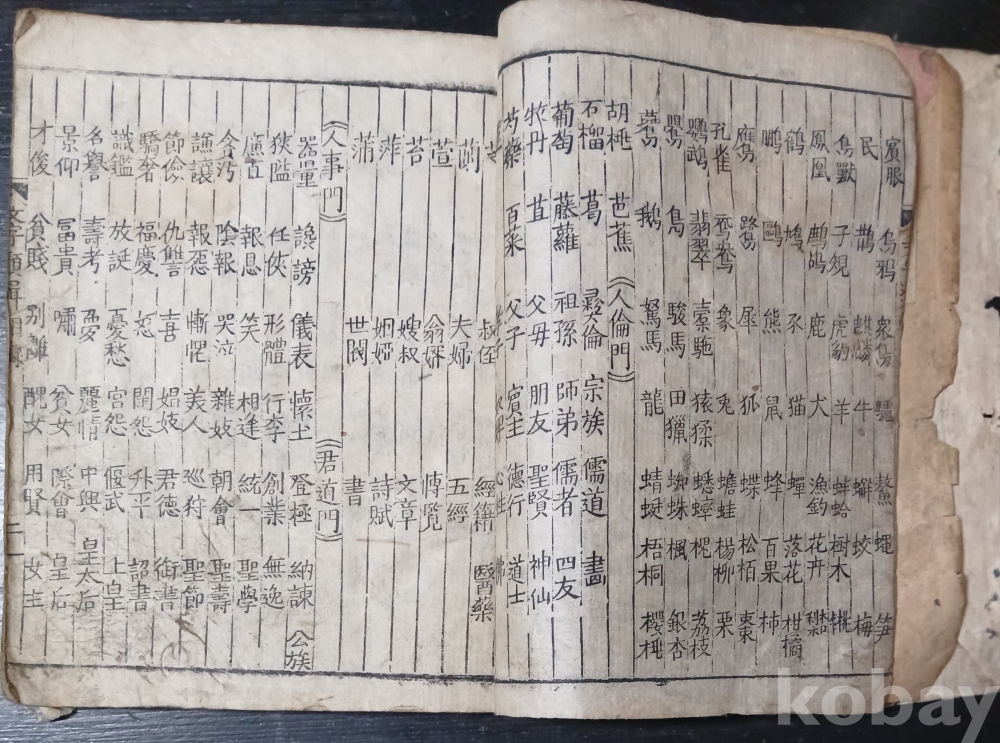 賓服 烏鴉 衆鳥 驢 鰲 蠅 笋
民 鵲 麒麟 牛 蛟 梅
鳥獸 子規 虎豹 羊 蚌蛤 樹木 桃
鳳凰 鷓鴣 鹿 犬 漁釣 花卉 梨
鶴 鳩 豕 猫 蟬 落花 柑橘
鵬 鷗 熊 鼠 蜂 百果 柿
鷹 鷺 犀 狐 蝶 松栢 棗
孔雀 鴛鴦 象 兎 蟾蛙 楊柳 栗
鸚鵡 翡翠 橐駞 猿猱 蟋蟀 槐 荔枝
鷃 鳧 駿馬 田獵 蜘蛛 楓 銀杏
鷰 鵝 駑馬 龍 蜻蜓 梧桐 櫻桃
胡桃 芭蕉 《人倫門》
石榴 葛 彛倫 宗族 儒道 畵
葡萄 藤蘿 祖孫 師弟 儒者 四友
牧丹 苴 父母 朋友 聖賢 神仙
芍藥 百菜 父子 賓主 德行 道士
叔侄 經籍 醫藥
蘭 夫婦 五經
萱 翁婿 博覽
苔 嫂叔 文章
萍 姻婭 詩賦
蒲 世閥 書
《人事門》 《君道門》
器量 讒謗 儀表 懷土 登極 納諫 公族
狹隘 任俠 形體 行李 創業 無逸
廉直 報恩 笑 相逢 統一 聖學
貪汚 陰報 哭泣 雜妓 朝會 聖壽
謙讓 報怨 慚愧 美人 巡狩 聖節
節儉 仇讐 喜 娼妓 君德 衙書
驕奢 福慶 怒 閨怨 升平 詔書
識鑑 放誕 憂愁 宮怨 偃武 上皇
名譽 壽考 憂 麗情 中興 皇太后
景仰 富貴 嘯 貧女 際會 皇后
才俊 貧賤 別離 醜女 用賢 女主
文字 輯目 二
kobay